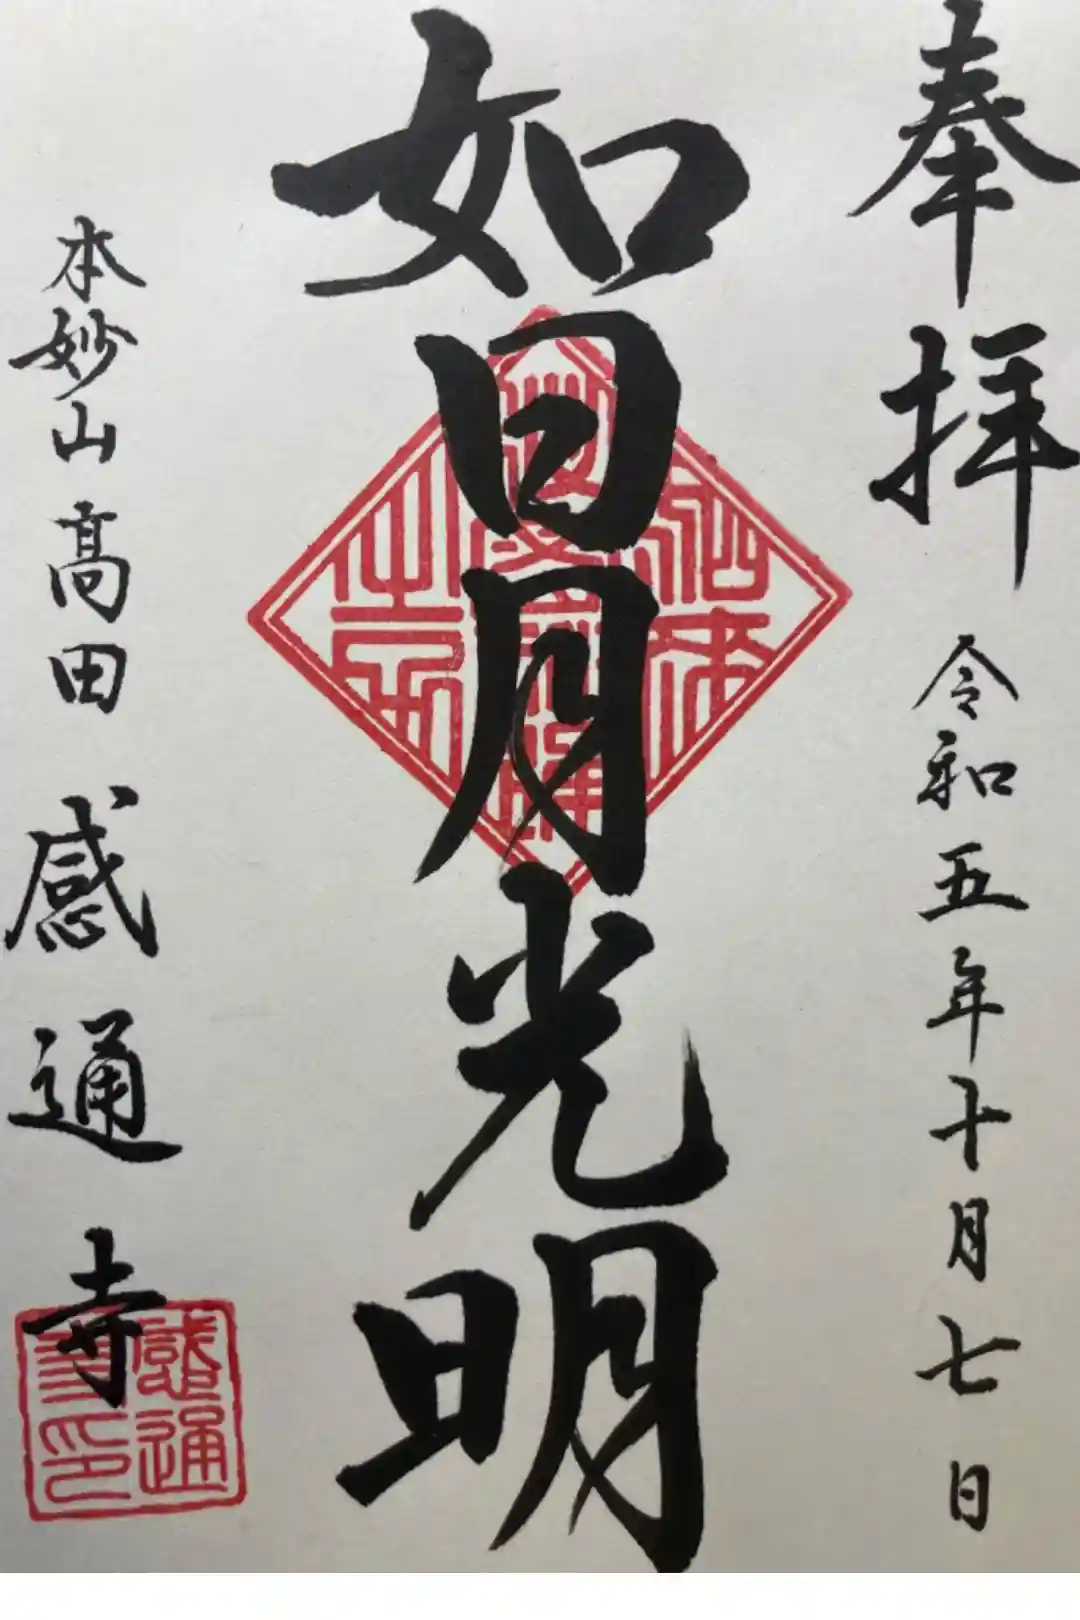 奉拝
令和五年十月七日
如日月光明
本妙山高田
感通寺
感通
寺印